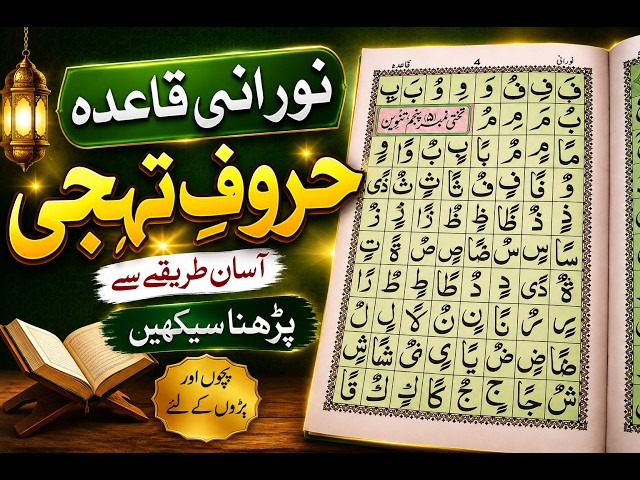 نورانی قاعدہ
حروفِ تہجی
آسان طریقے سے
پڑھنا سیکھیں
بچوں اور
بڑوں کے لئے
نورانی 4 قاعدہ
فَ فِ فُ وَ وِ وُ بَ بِ
بُ مَ مِ مُ تختی نمبر (۵) پنجم تنوین
مًا مٍ مٌ بًا بٍ بٌ وًا وٍ
وٌ فًا فٍ فٌ ثًا ثٍ ثٌ ذًى
ذٍ ذٌ ظًا ظٍ ظٌ زًا زٍ زٌ
سًا سٍ سٌ صًا صٍ صٌ ةً تٍ
ةٌ دًى دٍ دٌ طًا طٍ طٌ رًا
رٍ رٌ نًا نٍ نٌ لًا لٍ لٌ
ضًا ضٍ ضٌ يًا يٍ ىٌ شًا شٍ
شٌ جًا جٍ جٌ كًا كٍ كٌ قًا